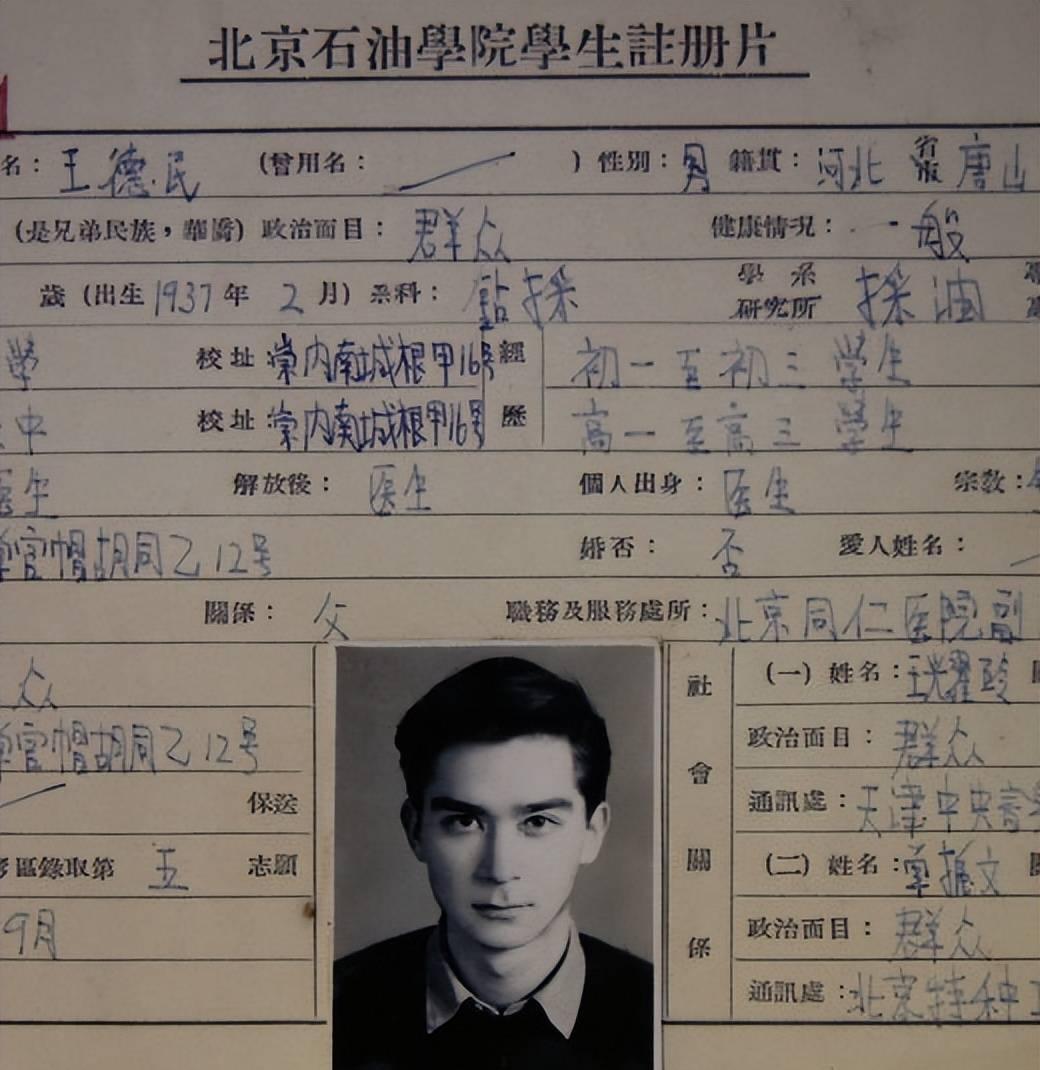 北京石油學院學生註册片
名：王德民 (曾用名： ) 性別：男 籍貫：河北 省市 唐山
(是兄弟民族，華僑) 政治面目：群众 健康情况：一般
歲 (出生 1937 年 2 月) 系科：鉆採 學系研究所 採油
學 校址：崇内南城根甲16号 經 初一至初三學生
中 校址：崇内南城根甲16号 歷 高一至高三學生
医生 解放後：医生 個人出身：医生 宗教：
官帽胡同乙12号 婚否：否 愛人姓名：
關係：父 職務及服務處所：北京同仁医院副
众 社會關係 (一) 姓名：王光耀
官帽胡同乙12号 政治面目：群众
保送 通訊處：天津中央
區錄取第 五 志願 (二) 姓名：振文
9月 政治面目：群众
通訊處：北京特种工